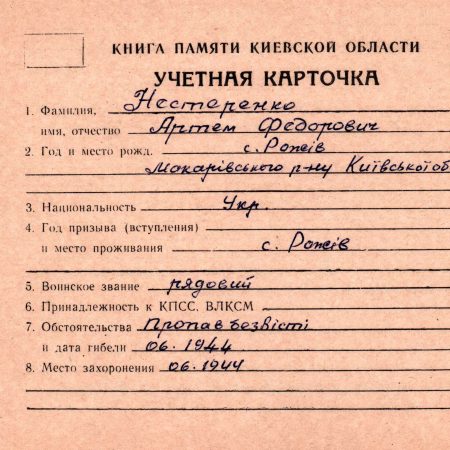 КНИГА ПАМЯТИ КИЕВСКОЙ ОБЛАСТИ
УЧЕТНАЯ КАРТОЧКА
1. Фамилия, Нестеренко
имя, отчество Артем Федорович
2. Год и место рожд. с. Рожів
Макарівського р-ну Київської об
3. Национальность Укр.
4. Год призыва (вступления)
и место проживания с. Рожів
5. Воинское звание рядовий
6. Принадлежность к КПСС. ВЛКСМ
7. Обстоятельства Пропав безвісті
и дата гибели 06.1944
8. Место захоронения 06.1944